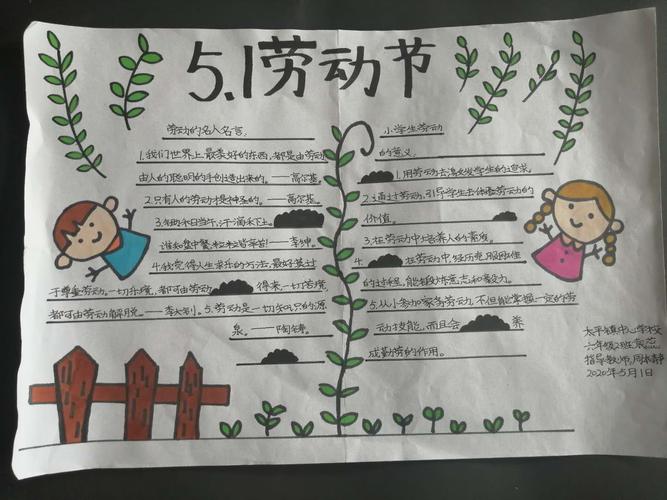 5.1劳动节
劳动的名人名言
1.我们世界上最美好的东西,都是由劳动
由人的聪明的手创造出来的。——高尔基。
2.只有人的劳动才是神圣的。——高尔基。
3.锄禾日当午,汗滴禾下土。
谁知盘中餐,粒粒皆辛苦!——李绅。
4.我觉得人生求乐的方法,最好莫过
于尊重劳动。一切乐境,都可由劳动得来,一切苦境
都可由劳动解脱。——李大钊。5.劳动是一切知识的源
泉。——陶铸。
小学生劳动
的意义
1.用劳动去激发学生的追求。
2.通过劳动,引导学生去体验劳动的
价值。
3.在劳动中培养人的素质。
4.在劳动中,经历克服困难
的过程,能锻炼意志和毅力。
5.从小参加家务劳动,不但能掌握一定的劳
动技能,而且会养
成勤劳的作用。
太平镇中心学校
六年级2班
指导教师,周
2020年5月1日